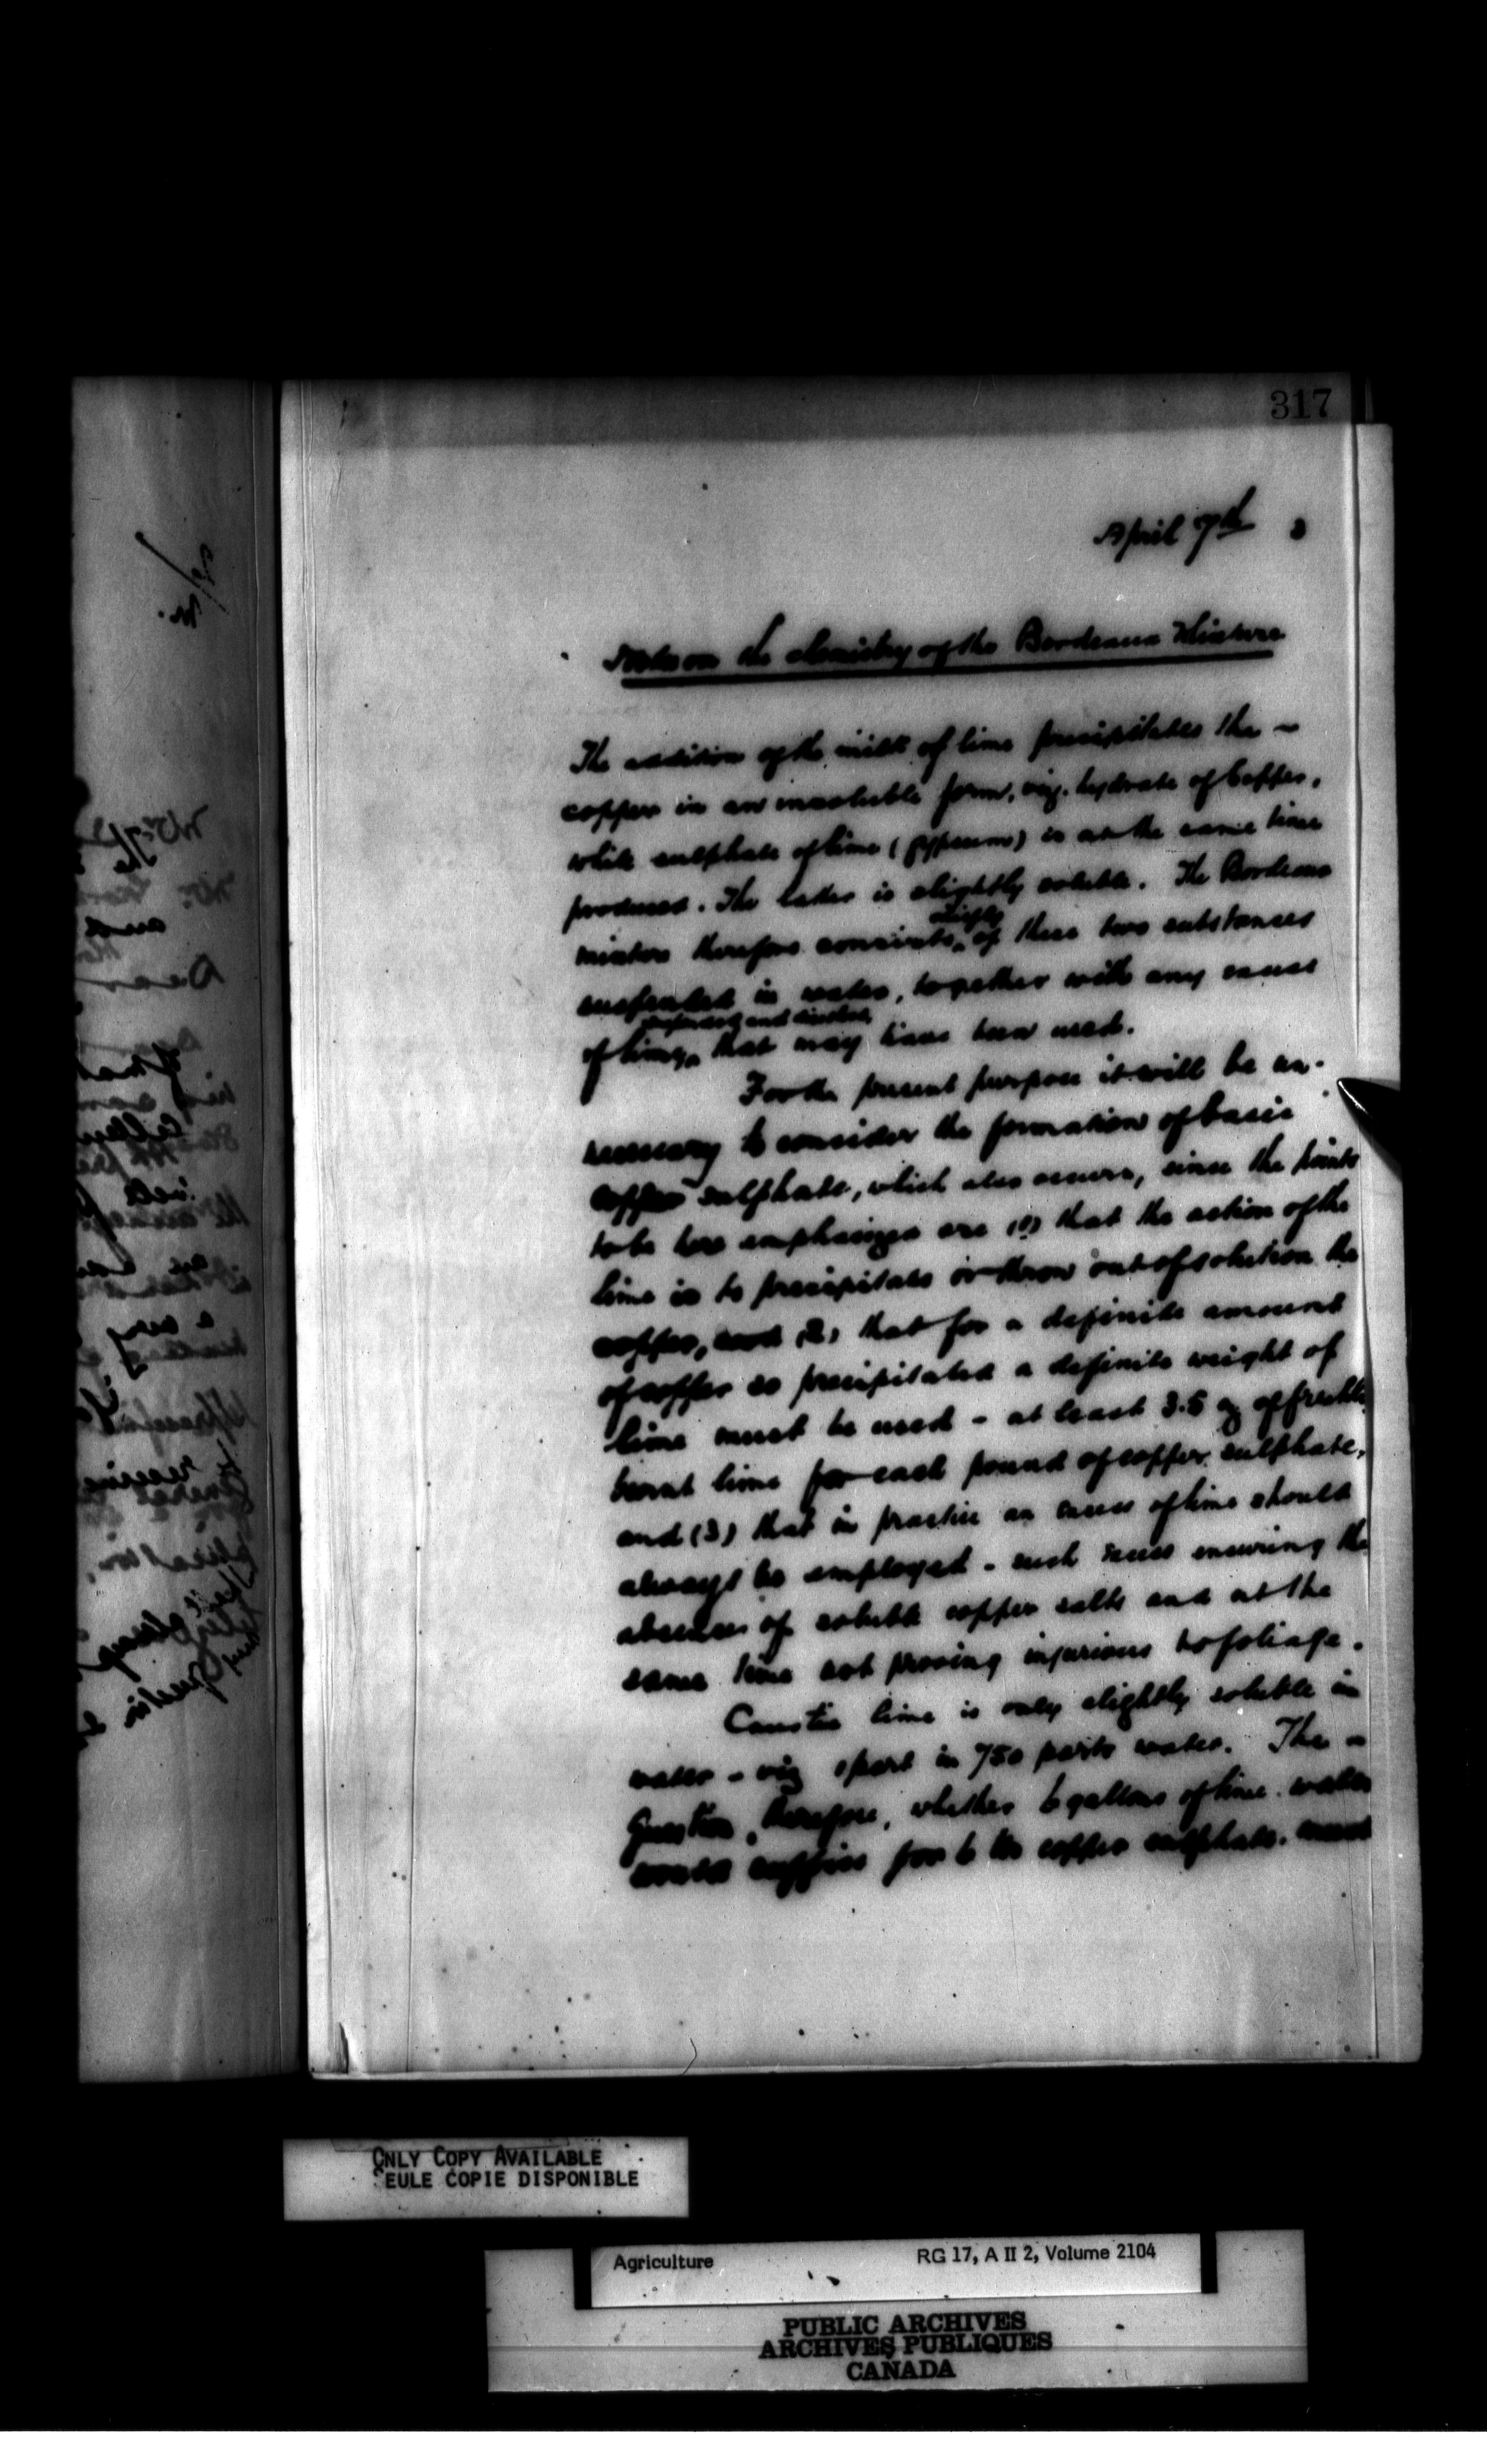 317
April 7th 3
Notes on the chemistry of the Bordeaux Mixture
The addition of the milk of lime precipitates the -
copper in an insoluble form, viz. hydrate of Copper,
while sulphate of lime (gypsum) is at the same time
produced. The latter is slightly soluble. The Bordeaux
chiefly
mixture therefore consists of these two substances
suspended in water, together with any excess
suspended and dissolved
of lime, that may have been used.
For the present purpose it will be un-
necessary to consider the formation of basic
copper sulphate, which also occurs, since the points
to be here emphasized are (1) that the action of the
lime is to precipitate or throw out of solution the
copper, and (2) that for a definite amount
of copper so precipitated a definite weight of
lime must be used - at least 3.5 oz of freshly
burnt lime for each pound of copper sulphate,
and (3) that in practice an excess of lime should
always be employed - such excess ensuring the
absence of soluble copper salts and at the
same time not proving injurious to foliage.
Caustic lime is only slightly soluble in
water - viz 1 part in 750 parts water. The -
question, therefore, whether 6 gallons of lime water
would suffice for 6 lbs copper sulphate, must
ONLY COPY AVAILABLE
EULE COPIE DISPONIBLE
Agriculture RG 17, A II 2, Volume 2104
PUBLIC ARCHIVES
ARCHIVES PUBLIQUES
CANADA